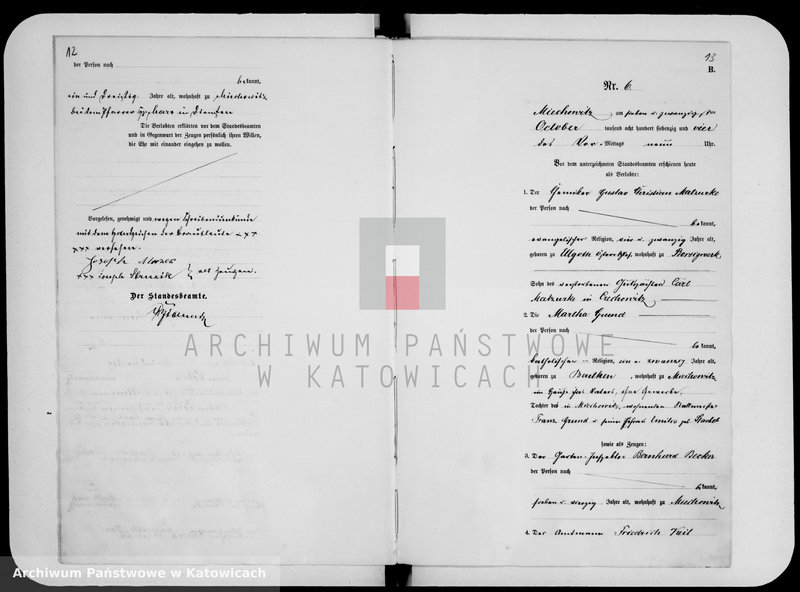 12
der Person nach
bekannt,
ein und dreißig Jahre alt, wohnhaft zu Miechowitz
bei dem Pfarrer in
Die Verlobten erklärten vor dem Standesbeamten
und in Gegenwart der Zeugen persönlich ihren Willen,
die Ehe mit einander eingehen zu wollen.
Vorgelesen, genehmigt und wegen Schreibensunkunde
mit dem Handzeichen der Brautleute + + +
+++ versehen.
Joseph
+++ Joseph als Zeugen.
Der Standesbeamte.
13
B.
Nr. 6.
Miechowitz am sieben u. zwanzigsten
October tausend acht hundert siebenzig und vier
des Vor-Mittags neun Uhr.
Vor dem unterzeichneten Standesbeamten erschienen heute
als Verlobte:
1. Der Chemiker Gustav Christian Matzurke
der Person nach
bekannt,
evangelischer Religion, vier u. zwanzig Jahre alt,
geboren zu Ellgoth wohnhaft zu Borsigwerk
Sohn des verstorbenen Carl
Matzurke in Czechowitz
2. Die Martha Grund
der Person nach
bekannt,
katholischer Religion, ein u. zwanzig Jahre alt,
geboren zu Beuthen, wohnhaft zu Miechowitz
im Hause ihres Vaters, ohne Gewerbe,
Tochter des in Miechowitz wohnenden
Franz Grund u. seiner Ehefrau Emilie geb.
sowie als Zeugen:
3. Der Garten-Inspektor Bernhard Becker
der Person nach
bekannt,
sieben u. vierzig Jahre alt, wohnhaft zu Miechowitz
4. Der Amtmann Friedrich Veit
ARCHIWUM PAŃSTWOWE
W KATOWICACH
Archiwum Państwowe w Katowicach